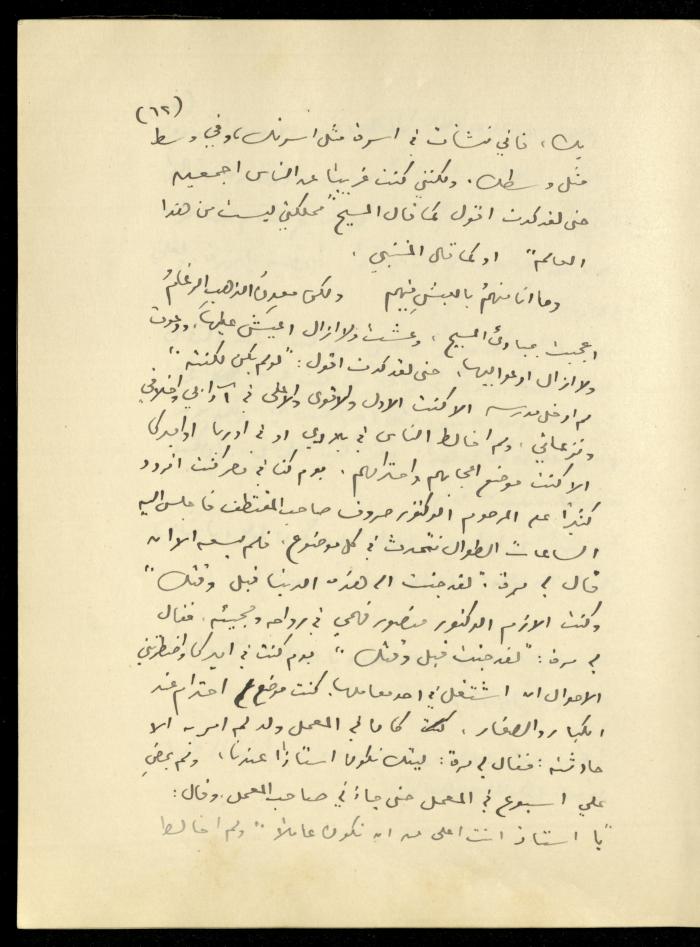 (٦٢)
بك، فاني نشأت في اسرة مثل اسرتك، وفي وسط
مثل وسطك. ولكنني كنت غريبًا عن الناس اجمعين
حتى لقد كدت اقول كما قال المسيح "مملكتي ليست من هذا
العالم" او كما قال المتنبي.
وما انا منهمُ بالعيش فيهم ولكن معدِنُ الذهب الرغامُ
اعجبت بمبادئ المسيح، وعشت ولا ازال اعيش عليها، ودعوت
ولا ازال ادعو اليها، حتى لقد كدت اقول: "لو لم يكن لكنته"
لم ادخل مدرسة الا كنت الاول والاقوى والاعلى في آدابي واخلاقي
ونزعاتي، ولم اخالط الناس في بلادي او في اوربا او اميركا
الا كنت موضع اعجابهم واحترامهم. يوم كنا في مصر كنت اتردد
كثيرًا على المرحوم الدكتور صروف صاحب المقتطف فاجلس اليه
الساعات الطوال نتحدث في كل موضوع، فلم يسعه الا ان
قال لي مرة: "لقد جئت الى هذه الدنيا قبل وقتك"
وكنت الازم الدكتور منصور فهمي في رواحه ومجيئه، فقال
لي مرة: "لقد جئت قبل وقتك" يوم كنت في اميركا واضطرتني
الاحوال ان اشتغل في احد معاملها. كنت موضع احترام عند
الكبار والصغار، كاما في المعمل ولد لم امر به الا
حادثته: فقال لي مرة: ليتك تكون استاذًا عندنا، ولم يمضِ
علي اسبوع في المعمل حتى جاءني صاحب المعمل، وقال:
"يا استاذ انت اعلى من ان تكون عاملاً" ولم اخالط